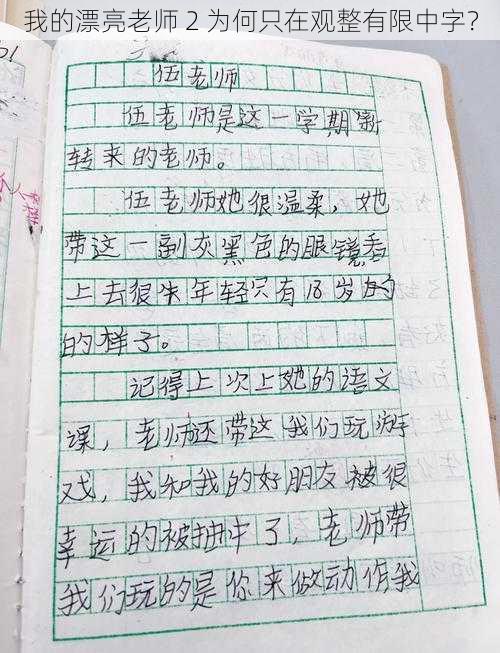 我的漂亮老师 2 为何只在观整有限中字？
伍老师
伍老师是这一学期新
转来的老师。
伍老师她很温柔，她
带这一副灰黑色的眼镜看
上去很年轻只有18岁的
的样子。
记得上次上她的语文
课，老师还带这我们玩游
戏，我和我的好朋友被很
幸运的被抽中了，老师带
我们玩的是你来做动作我